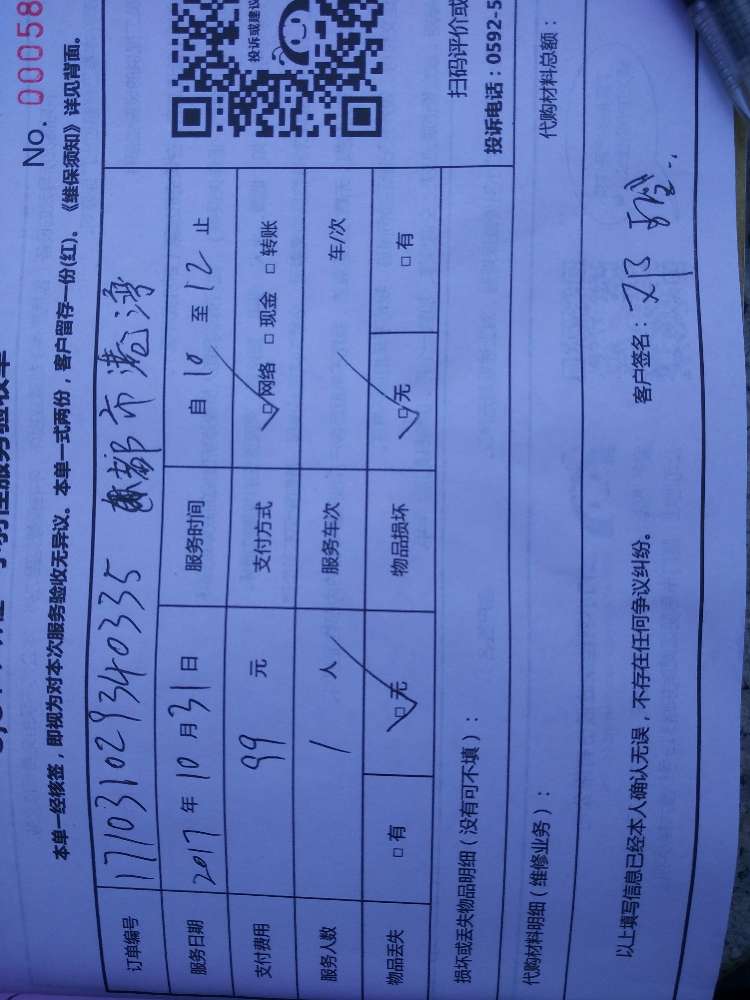 No. 00058
本单一经核签，即视为对本次服务验收无异议。本单一式两份，客户留存一份(红)。《维保须知》详见背面。
订单编号 171031029340335 都市港湾
服务日期 2017 年 10 月 31 日 服务时间 自 10 至 12 止
支付费用 99 元 支付方式 ☑网络 □现金 □转账
服务人数 1 人 服务车次 / 车/次
物品丢失 □有 ☑无 物品损坏 ☑无 □有
投诉或建议
损坏或丢失物品明细（没有可不填）：
扫码评价或
投诉电话：0592-5
代购材料明细（维修业务）：
代购材料总额：
以上填写信息已经本人确认无误，不存在任何争议纠纷。
客户签名：邓